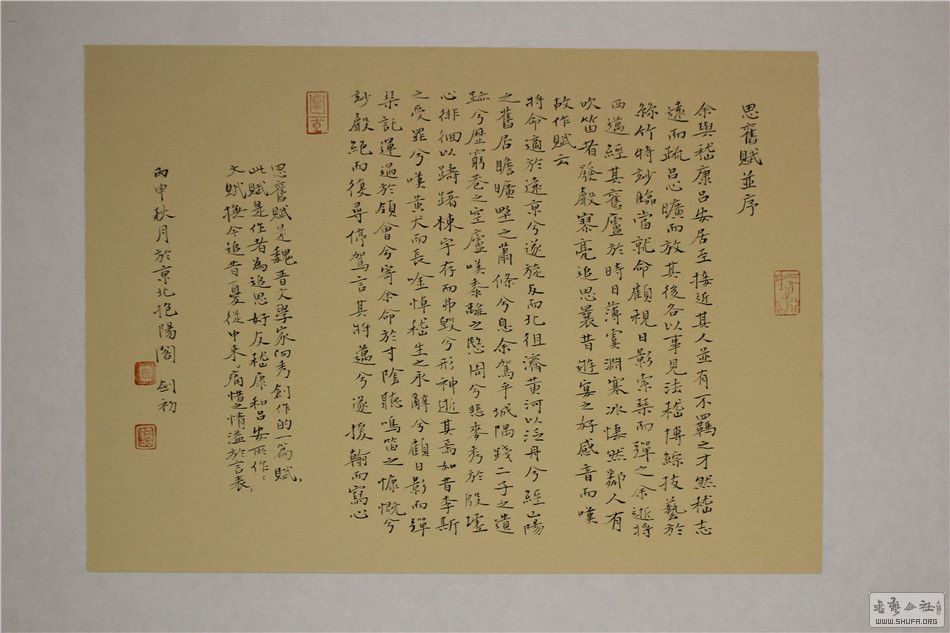 思舊賦並序
余與嵇康呂安居至接近其人並有不羈之才然嵇志
遠而疏呂心曠而放其後各以事見法嵇博綜技藝於
絲竹特妙臨當就命顧視日影索琴而彈之余逝將
西邁經其舊廬於時日薄虞淵寒冰悽然鄰人有
吹笛者發聲寥亮追思曩昔遊宴之好感音而嘆
故作賦云
將命適於遠京兮遂旋反而北徂濟黃河以泛舟兮經山陽
之舊居瞻曠野之蕭條兮息余駕乎城隅踐二子之遺
跡兮歷窮巷之空廬嘆黍離之愍周兮悲麥秀於殷墟
心徘徊以躊躇棟宇存而弗毀兮形神逝其焉如昔李斯
之受罪兮嘆黃犬而長吟悼嵇生之永辭兮顧日影而彈
琹託運遇於領會兮寄余命於寸陰聽鳴笛之慷慨兮
妙聲絕而復尋停駕言其將邁兮遂援翰而寫心
思舊賦是魏晋文學家向秀創作的一篇賦,
此賦是作者為追思好友嵇康和呂安所作。
文賦撫今追昔憂從中来。痛惜之情溢於言表。
丙申秋月於京北抱陽閣 剑初
書藝公社
WWW.SHUFA.ORG